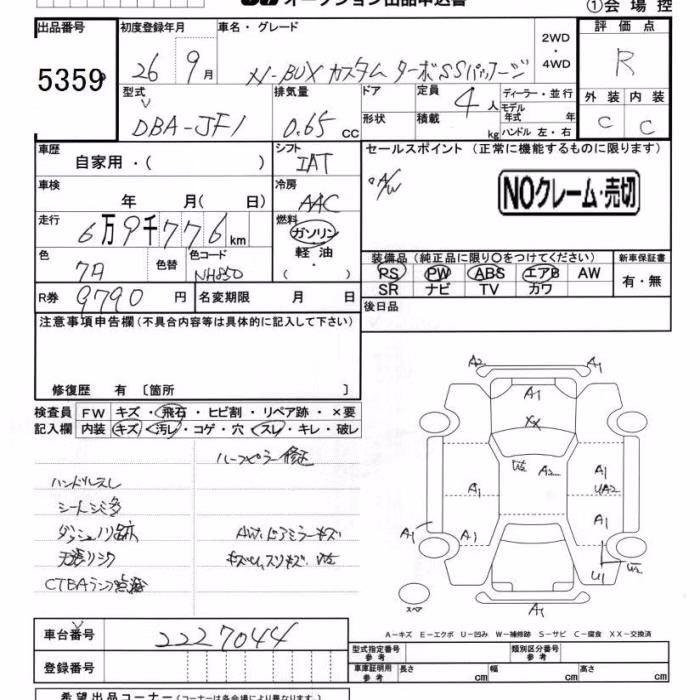 オークション出品申込書
①会場控
出品番号
5359
初度登録年月
26 9月
車名・グレード
N-BOX カスタム ターボSSパッケージ
2WD・4WD
評価点
R
型式
DBA-JF1
排気量
0.65 cc
ドア
形状
定員
4人
積載
kg
ディーラー・並行
モデル年式 年
ハンドル 左・右
外装 内装
C C
車歴
自家用・( )
シフト
IAT
セールスポイント (正常に機能するものに限ります)
°A/W
NOクレーム・売切
車検
年 月( 日)
冷房
AAC
走行
6万9千776km
燃料
ガソリン
軽油・
( )
色
色替
色コード
NH850
R券
9790円
名変期限 月 日
装備品(純正品に限り○をつけてください)
PS PW ABS エアB AW
SR ナビ TV カワ
新車保証書
有・無
後日品
注意事項申告欄(不具合内容等は具体的に記入して下さい)
修復歴 有 〔箇所 〕
検査員記入欄
FW キズ・飛石・ヒビ割・リペア跡・×要
内装 キズ・汚レ・コゲ・穴・スレ・キレ・破レ
ハーフピラー修正
ハンドルスレ
シートシミ多
ダッシュノリ跡
AW.ドアミラーキズ
A2 A1
A1
XX
A2
A1
A1
UA2
A1
A1
A1
U1
A1
スペア
A-キズ E-エクボ U-凹み W-補修跡 S-サビ C-腐食 XX-交換済
車台番号
2227044
登録番号
型式指定番号
参考
類別区分番号
参考
車庫証明用
参考
長さ cm 幅 cm 高さ cm
希望出品コーナー(コーナーは各会場により異なります。)